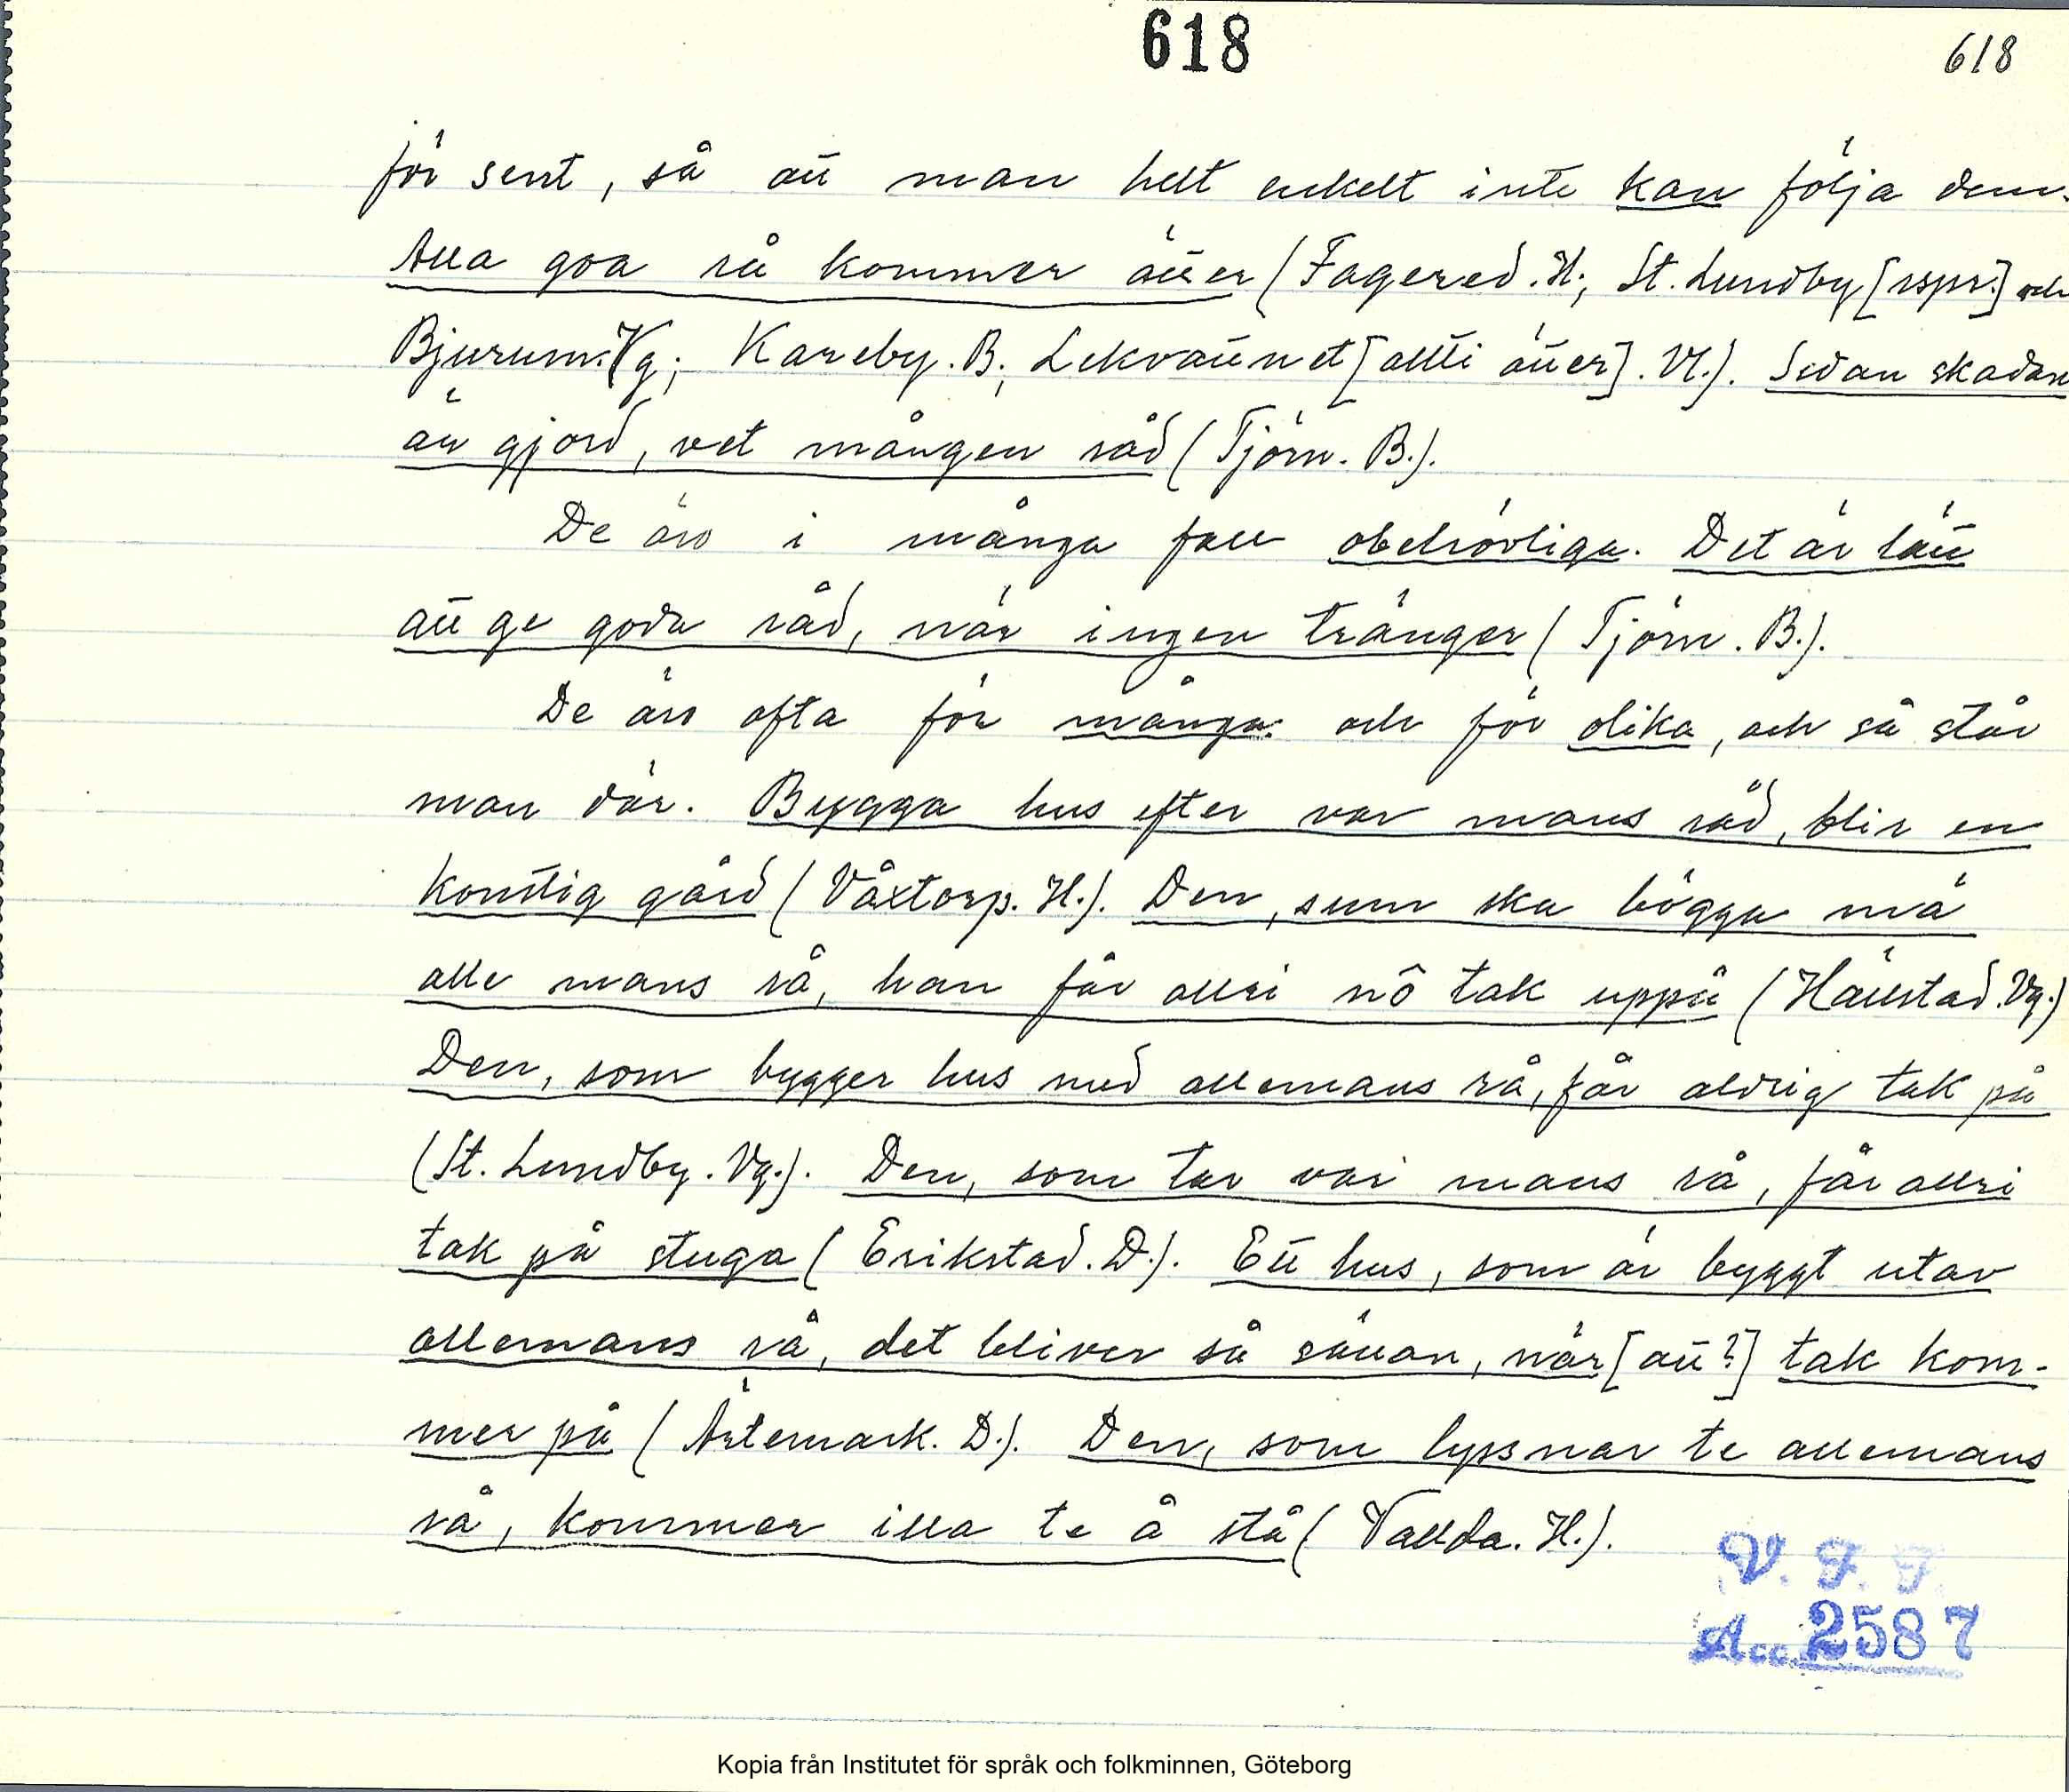 618
618
för sent, så att man helt enkelt inte kan följa dem.
Alla goa rå kommer ätter (Fagered. H; St. Lundby [rspr.] och
Bjurum. Vg; Kareby. B; Lekvattnet [allti ätter]. Vl.). Sedan skadan
är gjord, vet mången råd (Tjörn. B.).
De äro i många fall obehövliga. Det är lätt
att ge goda råd, när ingen tränger (Tjörn. B.).
De äro ofta för många och för olika, och så står
man där. Bygga hus efter var mans råd, blir en
konstig gård (Våxtorp. H.). Den, sum ska bögga mä
alle mans rå, han får allri nô tak uppå (Hällstad. Vg.)
Den, som bygger hus med allemans rå, får aldrig tak på
(St. Lundby. Vg.). Den, som tar var mans rå, får allri
tak på stuga (Erikstad. D.). Ett hus, som är byggt utav
allemans rå, det bliver så sällan, när [att?] tak kom-
mer på (Ärtemark. D.). Den, som lyssnar te allemans
rå, kommer illa te å stå (Vallda. H.).
V. F. F.
Acc. 2587
Kopia från Institutet för språk och folkminnen, Göteborg